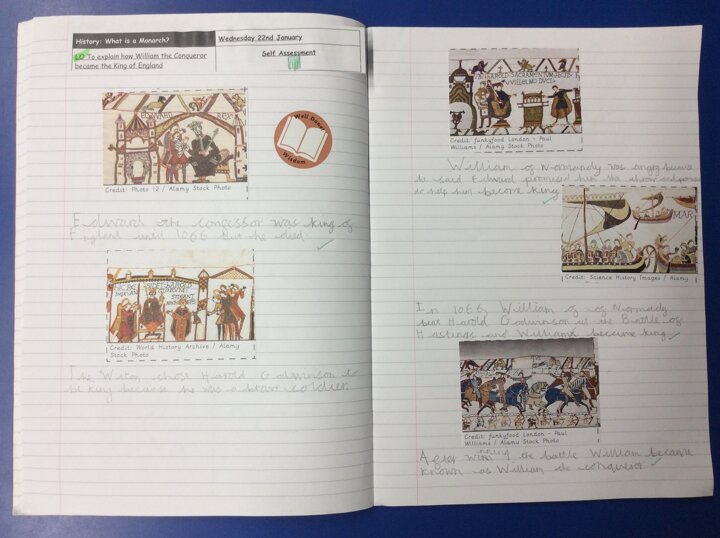 History: What is a Monarch?
Wednesday 22nd January
LO To explain how William the Conqueror
became the King of England
Self Assessment
EDWARD REX
Credit: Photo 12 / Alamy Stock Photo
Well Done
Wisdom
Edward the concessor was king of
England until 1066 But he died.
STIGANT
Credit: World History Archive / Alamy
Stock Photo
The Witan chose Harold Godwinson to
be king because he was a brave soldier.
SACRAMENTUM
VVILLELMO DUCI
Credit: funkyfood London - Paul
Williams / Alamy Stock Photo
William of Normandy was angry because
he said Edward promised him the throne
to help him become king
MAR
Credit: Science History Images / Alamy
In 1066, William of of Normady
beat Harold Godwinson at the Battle of
Hastings and William became king.
Credit: funkyfood London - Paul
Williams / Alamy Stock Photo
After the battle William became
known as William the conqueror